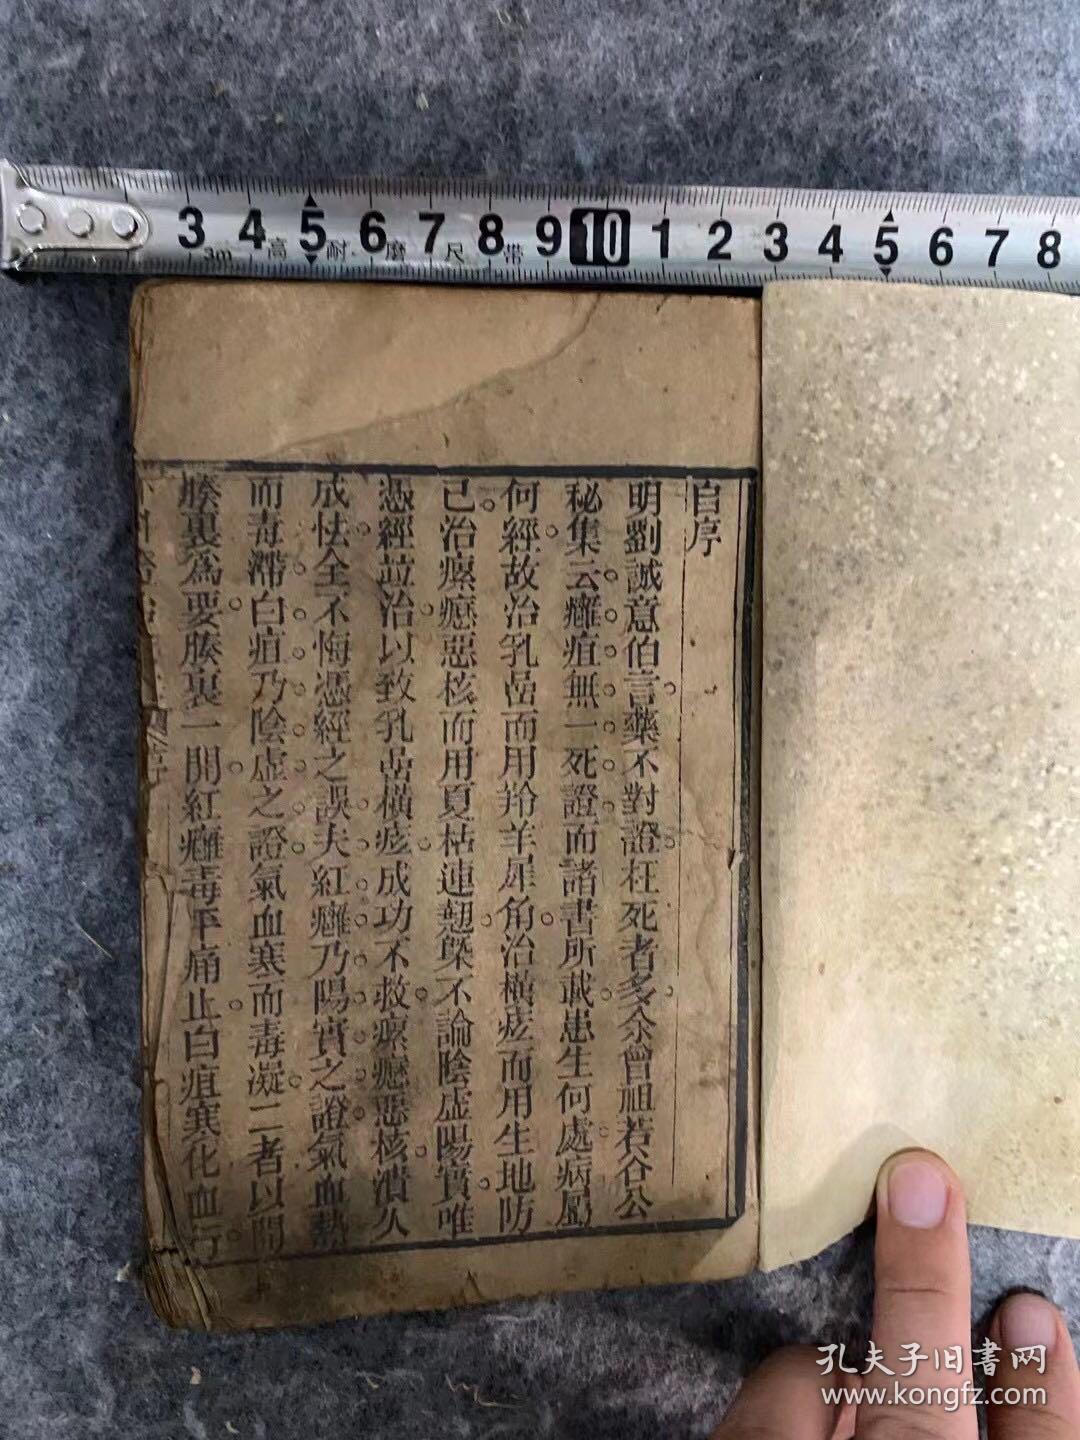 3 4 5 6 7 8 9 10 1 2 3 4 5 6 7 8
3m 高 耐 磨 尺 带
自序
明劉誠意伯言藥不對證枉死者多余曾祖若谷公
秘集云癰疽無一死證而諸書所載患生何處病屬
何經故治乳嵒而用羚羊犀角治橫痃而用生地防
己治瘰癧惡核而用夏枯連翹槩不論陰虛陽實唯
憑經並治以致乳嵒橫痃成功不救瘰癧惡核潰久
成怯全不悔憑經之誤夫紅癰乃陽實之證氣血熱
而毒滯白疽乃陰虛之證氣血寒而毒凝二者以開
腠裏為要腠裏一開紅癰毒平痛止白疽寒化血行
序
孔夫子旧書网
www.kongfz.com